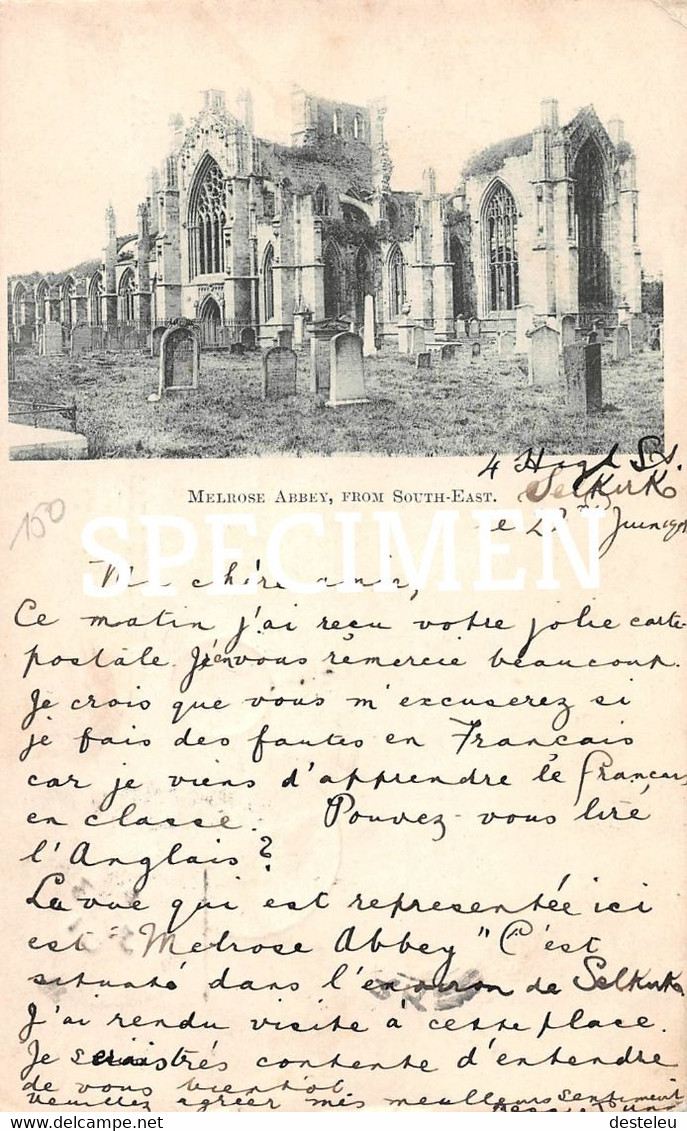 Melrose Abbey, from South-East.
4 High St.
Selkirk
le Juin
150
SPECIMEN
Ma chère amie,
Ce matin j'ai reçu votre jolie carte-
postale. J'en vous remercie beaucoup.
Je crois que vous m'excuserez si
je fais des fautes en Francais
car je viens d'apprendre le francais
en classe. Pouvez-vous lire
l'Anglais?
La vue qui est representée ici
est "Melrose Abbey" C'est
situaté dans l'environ de Selkirk
J'ai rendu visite à cette place.
Je serais trés contente d'entendre
de vous bientôt
Veuillez agréer mes meilleurs Sentiment
© www.delcampe.net
desteleu